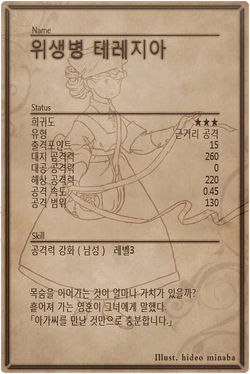 Name
위생병 테레지아
Status
희귀도 ★★★
유형 근거리 공격
출격포인트 15
대지 공격력 260
대공 공격력 0
해상 공격력 220
공격 속도 0.45
공격 범위 130
Skill
공격력 강화 ( 남성 )   레벨3
목숨을 이어가는 것이 얼마나 가치가 있을까?
흩어져 가는 영혼이 그녀에게 말했다.
「아가씨를 만난 것만으로 충분합니다.」
Illust. hideo minaba